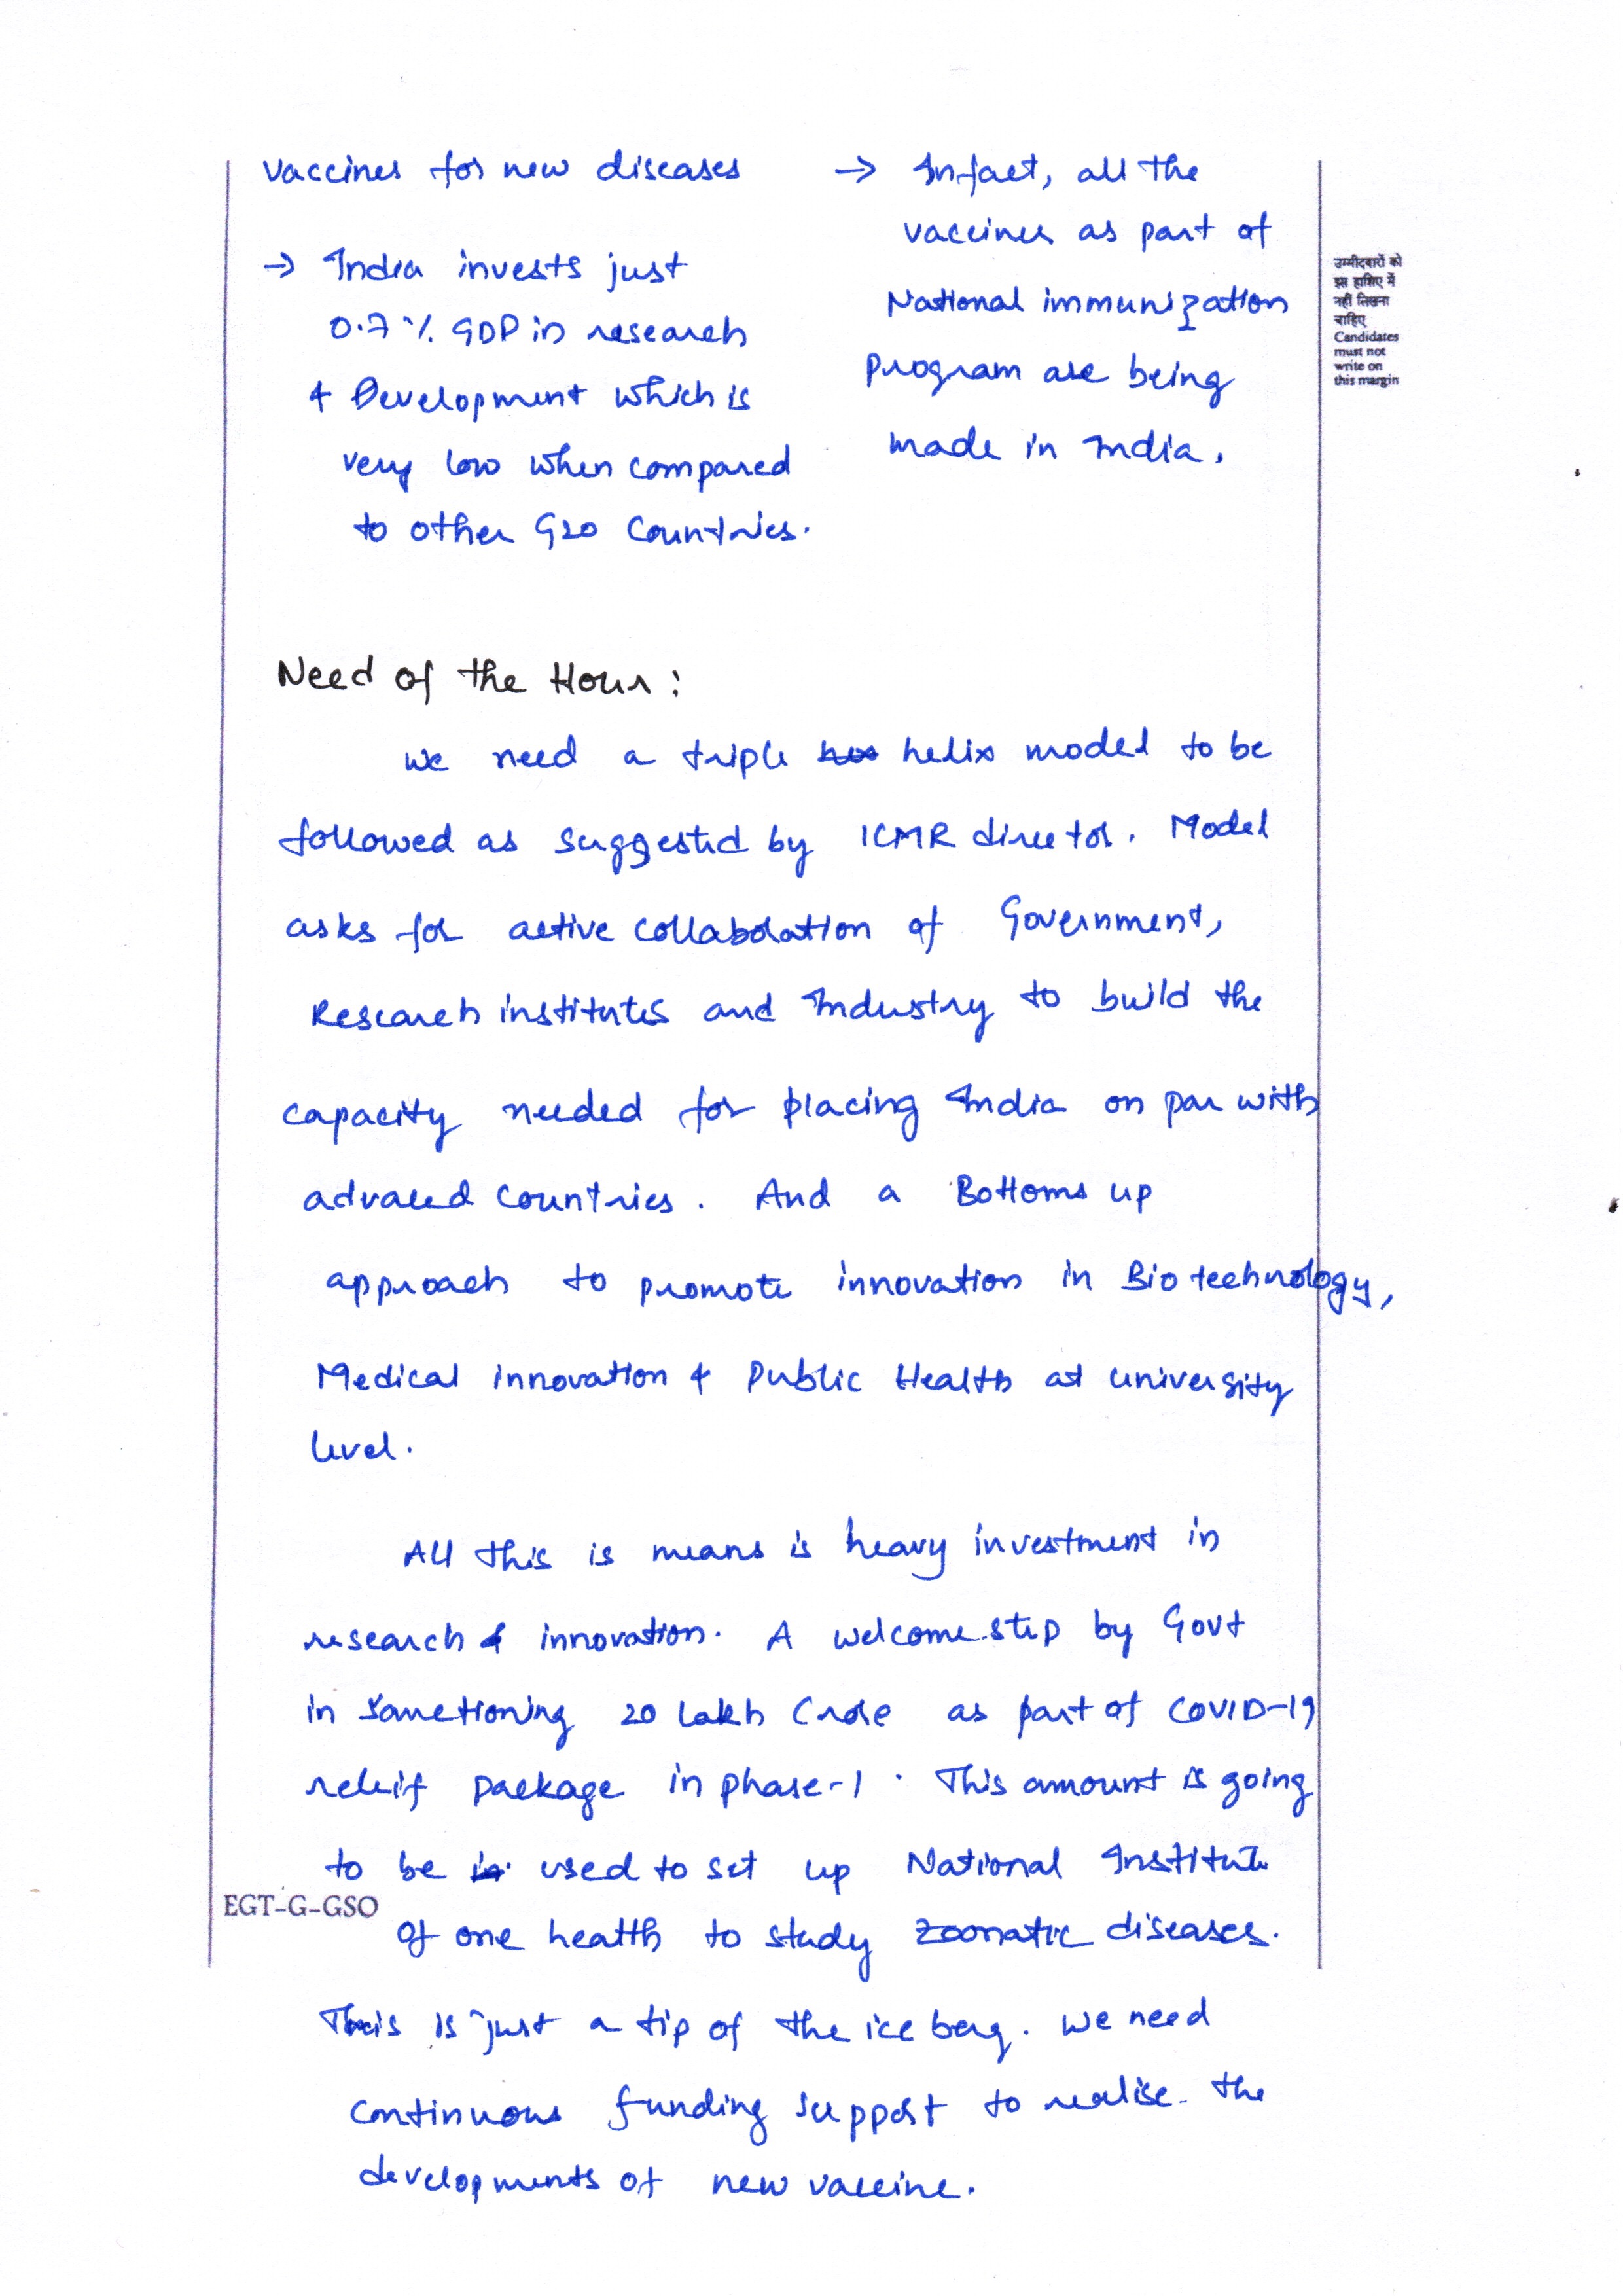 vaccines for new diseases
→ India invests just
0.7 % GDP in research
& Development which is
very low when compared
to other G20 Countries.
→ Infact, all the
vaccines as part of
National immunization
program are being
made in India.
उम्मीदवारों को
इस हाशिए में
नहीं लिखना
चाहिए
Candidates
must not
write on
this margin
Need of the Hour :
we need a triple helix model to be
followed as suggested by ICMR director. Model
asks for active collaboration of Government,
Research institutes and Industry to build the
capacity needed for placing India on par with
advaced countries. And a Bottoms up
approach to promote innovation in Bio technology,
Medical innovation & Public Health at university
level.
All this is means is heavy investment in
research & innovation. A welcome step by Govt
in Sanctioning 20 Lakh Crore as part of COVID-19
releif package in phase-1. This amount is going
to be used to set up National Institute
EGT-G-GSO
of one health to study zoonatic diseases.
This is just a tip of the ice berg. We need
continuous funding support to realise the
developments of new vaccine.